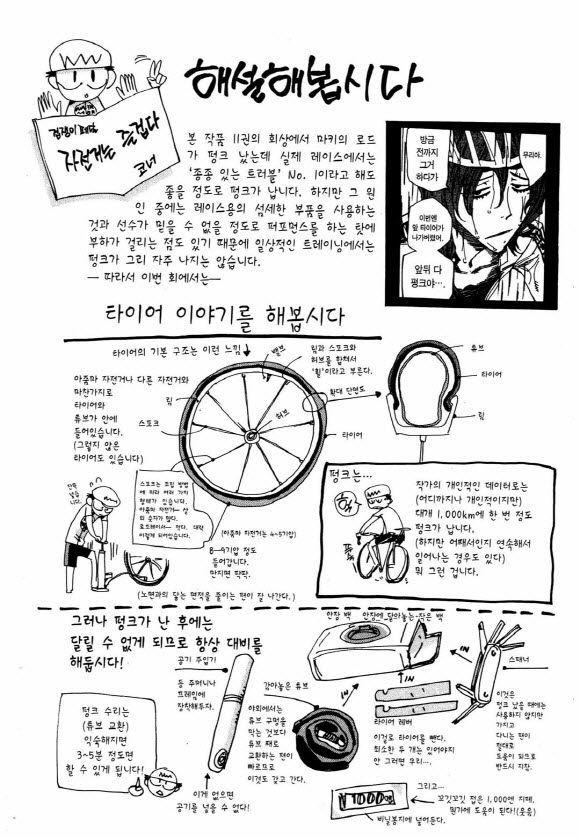 해설해봅시다
겁쟁이 페달
자전거는 즐겁다
코너
본 작품 11권의 회상에서 마키의 로드
가 펑크 났는데 실제 레이스에서는
'종종 있는 트러블' No. 1이라고 해도
좋을 정도로 펑크가 납니다. 하지만 그 원
인 중에는 레이스용의 섬세한 부품을 사용하는
것과 선수가 믿을 수 없을 정도로 퍼포먼스를 하는 탓에
부하가 걸리는 점도 있기 때문에 일상적인 트레이닝에서는
펑크가 그리 자주 나지는 않습니다.
— 따라서 이번 회에서는—
방금
전까지
그거
하다가
무리야.
이번엔
앞 타이어가
나가버렸어.
앞뒤 다
펑크야….
타이어 이야기를 해봅시다
타이어의 기본 구조는 이런 느낌
아줌마 자전거나 다른 자전거와
마찬가지로
타이어와
튜브가 안에
들어있습니다.
(그렇지 않은
타이어도 있습니다)
림
스포크
밸브
림과 스포크와
허브를 합쳐서
'휠'이라고 부른다.
허브
확대 단면도
타이어
튜브
타이어
림
스포크는 조립 방법
에 따라 여러 가지
형태가 있습니다.
아줌마 자전거는 살
의 숫자가 많다.
이렇게 되어있습니다.
(아줌마 자전거는 4~5기압)
8~9기압 정도
들어갑니다.
만지면 딱딱.
(노면과의 닿는 면적을 줄이는 편이 잘 나간다.)
펑크는…
작가의 개인적인 데이터로는
(어디까지나 개인적이지만)
대개 1,000km에 한 번 정도
펑크가 납니다.
(하지만 어째서인지 연속해서
일어나는 경우도 있다)
뭐 그런 겁니다.
그러나 펑크가 난 후에는
달릴 수 없게 되므로 항상 대비를
해둡시다!
공기 주입기
등 주머니나
프레임에
장착해두자.
이게 없으면
공기를 넣을 수 없다!
펑크 수리는
(튜브 교환)
익숙해지면
3~5분 정도면
할 수 있게 됩니다!
감아놓은 튜브
야외에서는
튜브 구멍을
막는 것보다
튜브 째로
교환하는 편이
빠르므로
이것도 갖고 간다.
안장 백
안장에 달아놓는 작은 백
IN
IN
IN
타이어 레버
이걸로 타이어를 뺀다.
최소한 두 개는 있어야지
안 그러면 무리….
스패너
이것은
펑크 났을 때에는
사용하지 않지만
가지고
다니는 편이
절대로
도움이 되므로
반드시 지참.
¥1000엔
그리고…
꼬깃꼬깃 접은 1,000엔 지폐.
뭔가에 도움이 된다!(웃음)
비닐봉지에 넣어둔다.